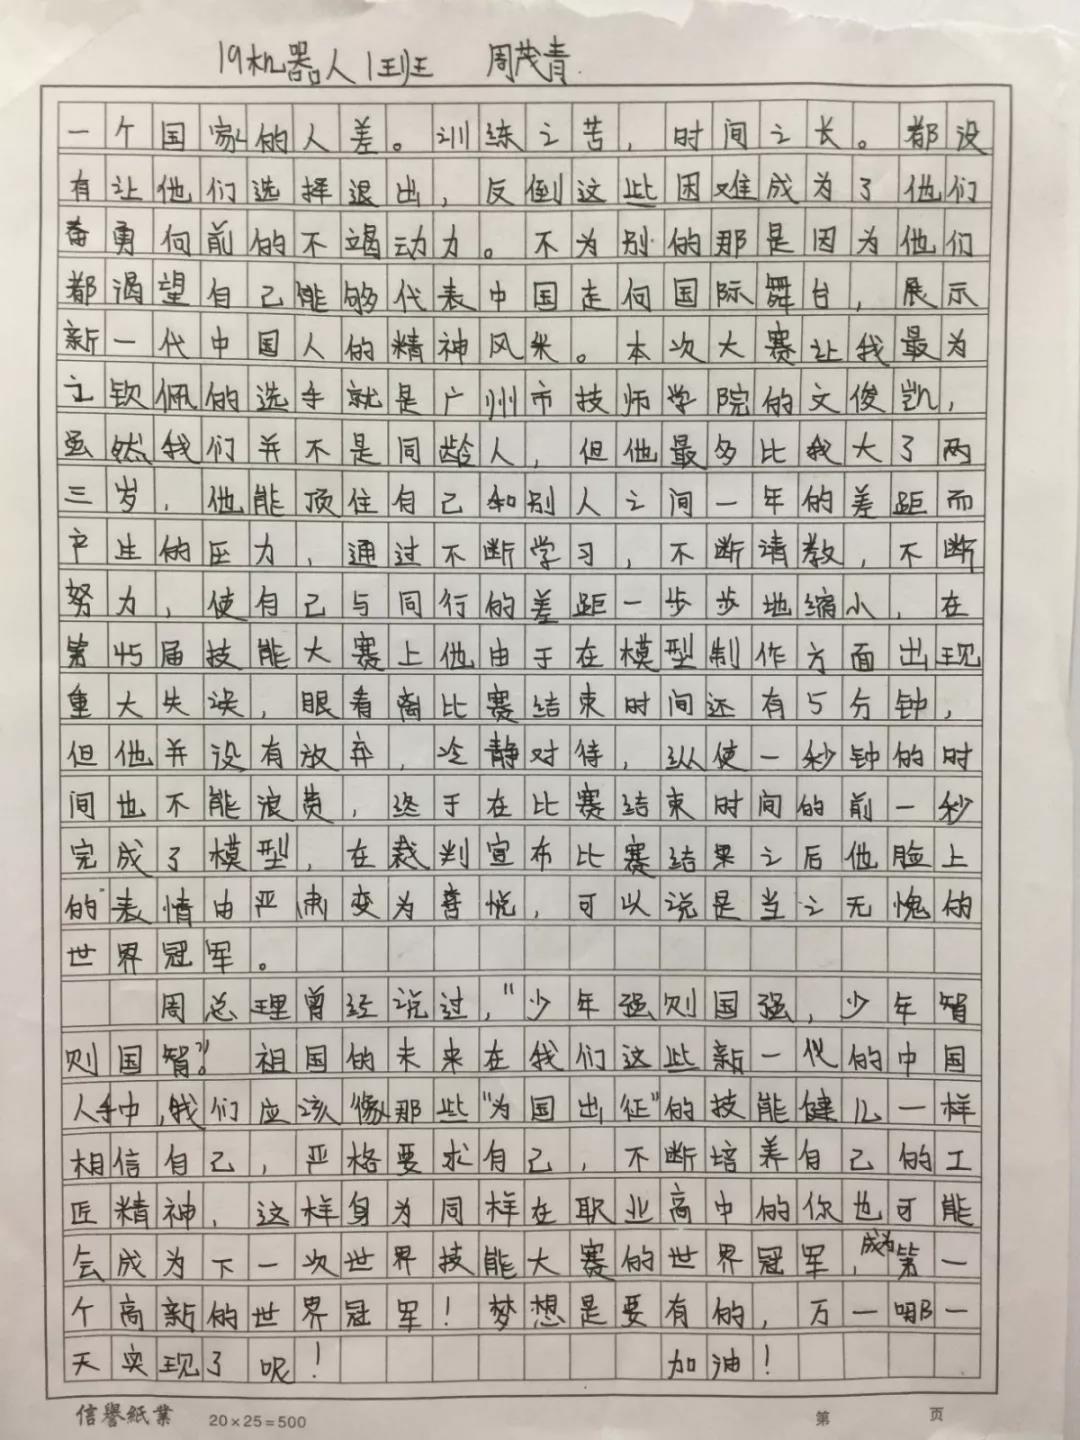 19机器人1班 周茂青
一个国家的人差。训练之苦，时间之长。都没
有让他们选择退出，反倒这些困难成为了他们
奋勇向前的不竭动力。不为别的那是因为他们
都渴望自己能够代表中国走向国际舞台，展示
新一代中国人的精神风米。本次大赛让我最为
之钦佩的选手就是广州市技师学院的文俊凯，
虽然我们并不是同龄人，但他最多比我大了两
三岁，他能顶住自己和别人之间一年的差距而
产生的压力，通过不断学习，不断请教，不断
努力，使自己与同行的差距一步步地缩小，在
第45届技能大赛上他由于在模型制作方面出现
重大失误，眼看离比赛结束时间还有5分钟，
但他并没有放弃，冷静对待，纵使一秒钟的时
间也不能浪费，终于在比赛结束时间的前一秒
完成了模型，在裁判宣布比赛结果之后他脸上
的表情由严肃变为喜悦，可以说是当之无愧的
世界冠军。
周总理曾经说过，“少年强则国强，少年智
则国智”。祖国的未来在我们这些新一代的中国
人手中，我们应该像那些“为国出征”的技能健儿一样
相信自己，严格要求自己，不断培养自己的工
匠精神，这样身为同样在职业高中的你也可能
会成为下一次世界技能大赛的世界冠军，成为第一
个高新的世界冠军！梦想是要有的，万一哪一
天实现了呢！ 加油！
信譽紙業 20×25=500 第 页